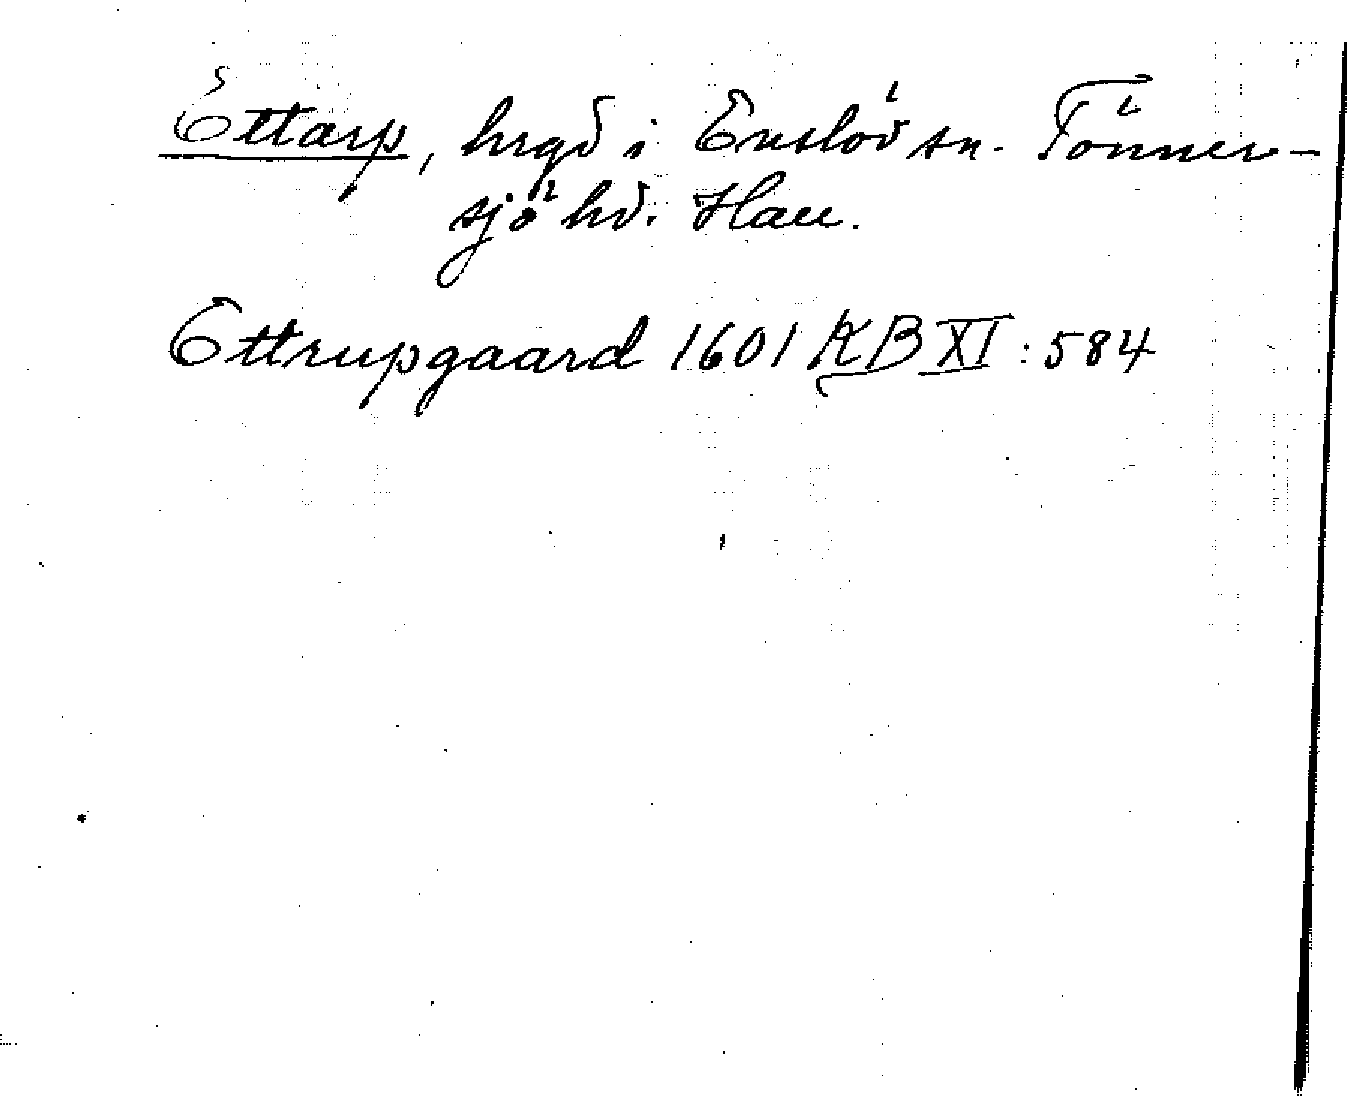 Ettarp, hrgd i Enslöv sn. Tönner-
sjö hd. Hall.
Ettrupgaard 1601 KB XI : 584